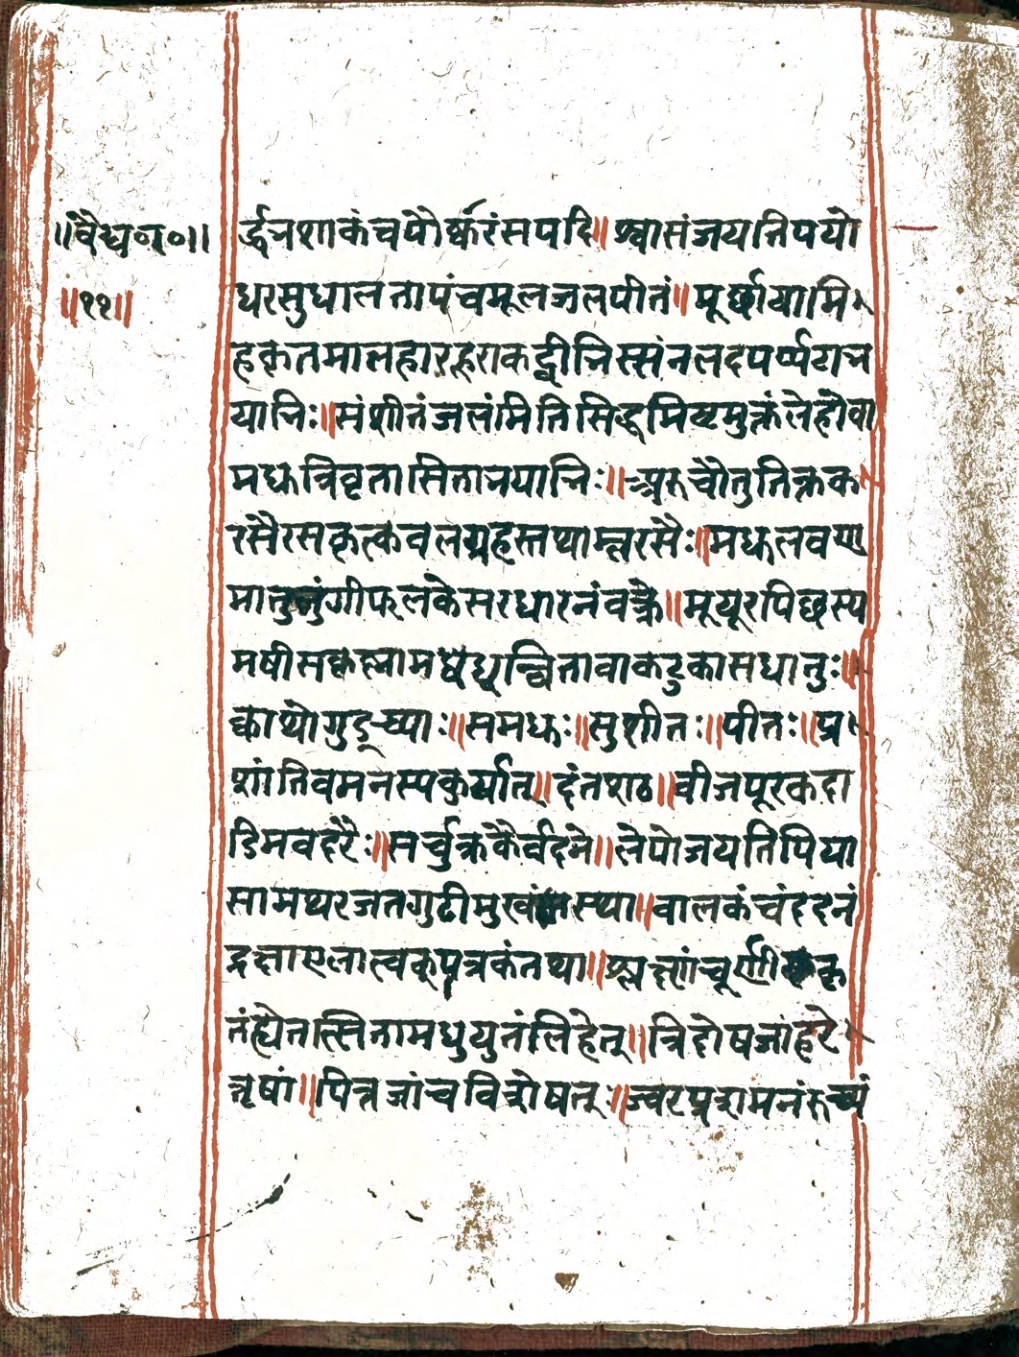 ॥वैद्य०र०॥
॥११॥
र्द्धत्रशाकंचपौर्ष्करंसपदि॥श्वासंजयतिपयो
धरसुधालतापंचमूलजलपीतं॥मूर्छायामि
हकृतमालहारहूराकद्वीनिस्संनलदपर्प्पटान
यानिः॥संशीतंजलंमितिसिद्धमिष्टमुक्तंलेहौवा
मधत्रिवृतासितानयानिः॥अरुचौतुतिक्तक
रसैरसकृत्कवलग्रहस्तथाम्लरसैः॥मधलवण
मातुलुंगीफलकेसरधारनंवक्रे॥मूयूरपिछस्प
मषीसकृह्लामधेधून्वितावाकटुकासधातुः॥
क्वाथोगुडूच्याः॥समधः॥सुशीतः॥पीतः॥प्र
शांतिवमनस्पकुर्यात्॥दंतशठ॥वीजपूरकदा
डिमवदरैः॥सर्चुक्रकैर्वदने॥लेपोजयतिपिया
सामथरजतगुटीमुखांतस्था॥वालकंचंददनं
द्रक्षाएलात्वक्पत्रकंतथा॥श्लक्ष्णंचूर्णीकृ
तंह्येतात्सितामधुयुतंलिहेत्॥त्रिदोषजांहरे
त्तृषां॥पित्तजांचविशेषतः॥ज्वरप्रशमनंरुच्यं